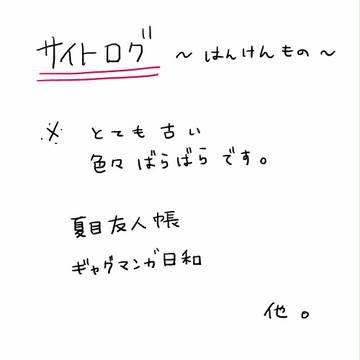 サイトログ ～はんけんもの～
※ とても古い
色々ばらばらです。
夏目友人帳
ギャグマンガ日和
他。